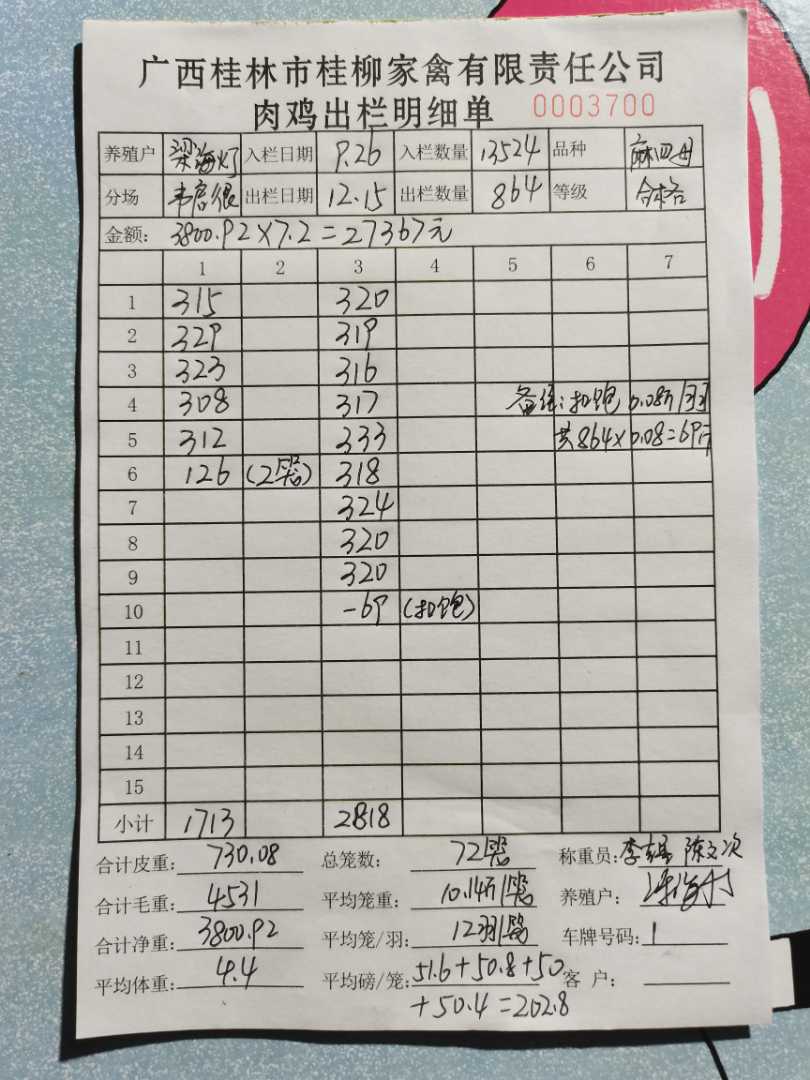 广西桂林市桂柳家禽有限责任公司
肉鸡出栏明细单 0003700
养殖户 梁海灯 入栏日期 9.26 入栏数量 13524 品种 麻四母
分场 韦启很 出栏日期 12.15 出栏数量 864 等级 合格
金额: 3800.92×7.2=27367元
1 2 3 4 5 6 7
1 315 320
2 329 319
3 323 316
4 308 317 备注:扣饱 0.08斤/羽
5 312 333 共864×0.08=69斤
6 126 (2笼) 318
7 324
8 320
9 320
10 -69 (扣饱)
11
12
13
14
15
小计 1713 2818
合计皮重: 730.08 总笼数: 72笼 称重员:
合计毛重: 4531 平均笼重: 10.14斤/笼 养殖户:
合计净重: 3800.92 平均笼/羽: 12羽/笼 车牌号码: 1
平均体重: 4.4 平均磅/笼: 51.6+50.8+50 客户:
+50.4=202.8